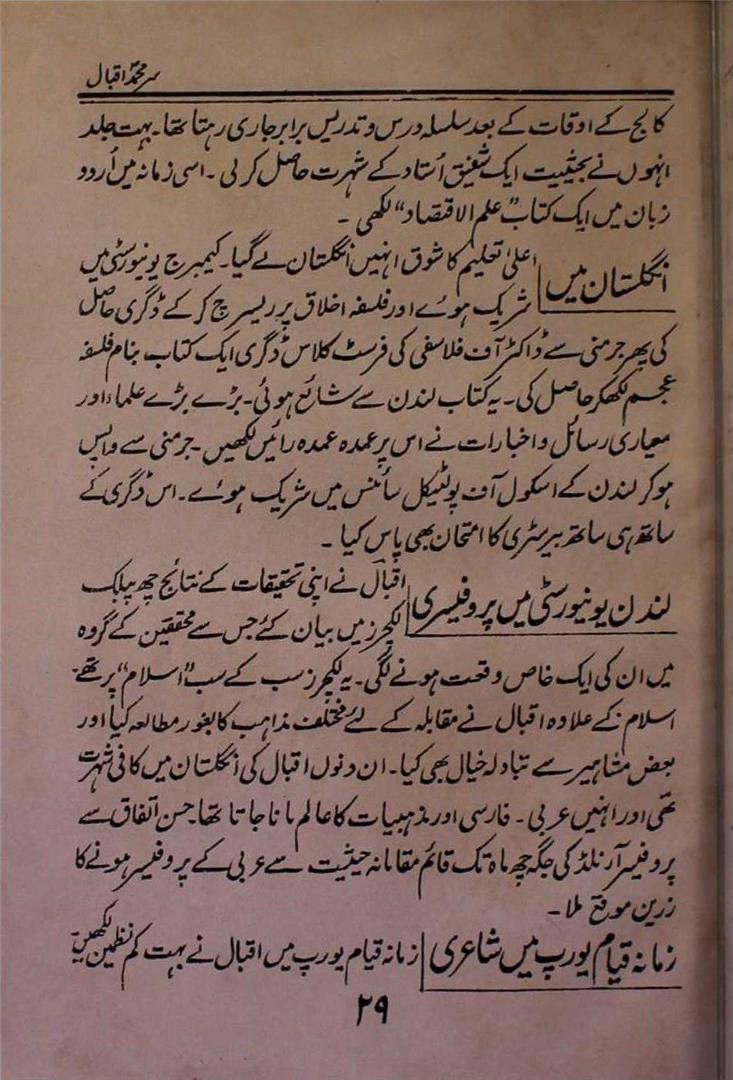 سر محمدؐ اقبال
کالج کے اوقات کے بعد سلسلہ درس و تدریس برابر جاری رہتا تھا۔ بہت جلد
انہوں نے بحیثیت ایک شفیق اُستاد کے شہرت حاصل کر لی۔ اسی زمانہ میں اُردو
زبان میں ایک کتاب "علم الاقتصاد" لکھی۔
انگلستان میں اعلیٰ تعلیم کا شوق انہیں انگلستان لے گیا۔ کیمبرج یونیورسٹی میں
شریک ہوئے اور فلسفہ اخلاق پر ریسرچ کر کے ڈگری حاصل
کی پھر جرمنی سے ڈاکٹر آف فلاسفی کی فرسٹ کلاس ڈگری ایک کتاب بنام فلسفہ
عجم لکھکر حاصل کی۔ یہ کتاب لندن سے شائع ہوئی۔ بڑے بڑے علماء اور
معیاری رسائل و اخبارات نے اس پر عمدہ عمدہ رائیں لکھیں۔ جرمنی سے واپس
ہو کر لندن کے اسکول آف پولٹیکل سائنس میں شریک ہوئے۔ اس ڈگری کے
ساتھ ہی ساتھ بیرسٹری کا امتحان بھی پاس کیا۔
لندن یونیورسٹی میں پروفیسری اقبال نے اپنی تحقیقات کے نتائج چھ پبلک
لکچرز میں بیان کئے جس سے محققین کے گروہ
میں ان کی ایک خاص وقعت ہونے لگی۔ یہ لکچرز سب کے سب "اسلام" پر تھے۔
اسلام کے علاوہ اقبال نے مقابلہ کے لئے مختلف مذاہب کا بغور مطالعہ کیا اور
بعض مشاہیر سے تبادلہ خیال بھی کیا۔ ان دنوں اقبال کی انگلستان میں کافی شہرت
تھی اور انہیں عربی۔ فارسی اور مذہبیات کا عالم مانا جاتا تھا۔ حسن اتفاق سے
پروفیسر آرنلڈ کی جگہ چھ ماہ تک قائم مقامانہ حیثیت سے عربی کے پروفیسر ہونے کا
زرین موقع ملا۔
زمانہ قیام یورپ میں شاعری زمانہ قیام یورپ میں اقبال نے بہت کم نظمیں لکھیں
۲۹